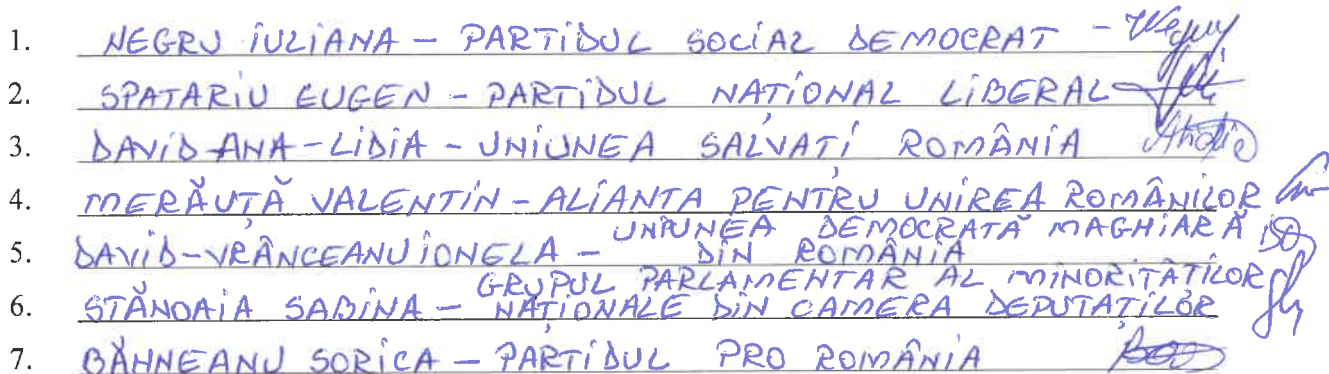 1. NEGRU IULIANA - PARTIDUL SOCIAL DEMOCRAT -
2. SPATARIU EUGEN - PARTIDUL NAȚIONAL LIBERAL
3. DAVID ANA-LIDIA - UNIUNEA SALVATI ROMÂNIA
4. MERĂUȚĂ VALENTIN - ALIANTA PENTRU UNIREA ROMÂNILOR
UNIUNEA DEMOCRATĂ MAGHIARĂ
5. DAVID-VRÂNCEANU IONELA - DIN ROMÂNIA
GRUPUL PARLAMENTAR AL MINORITĂȚILOR
6. STĂNOAIA SABINA - NAȚIONALE DIN CAMERA DEPUTAȚILOR
7. BĂHNEANU SORICA - PARTIDUL PRO ROMÂNIA